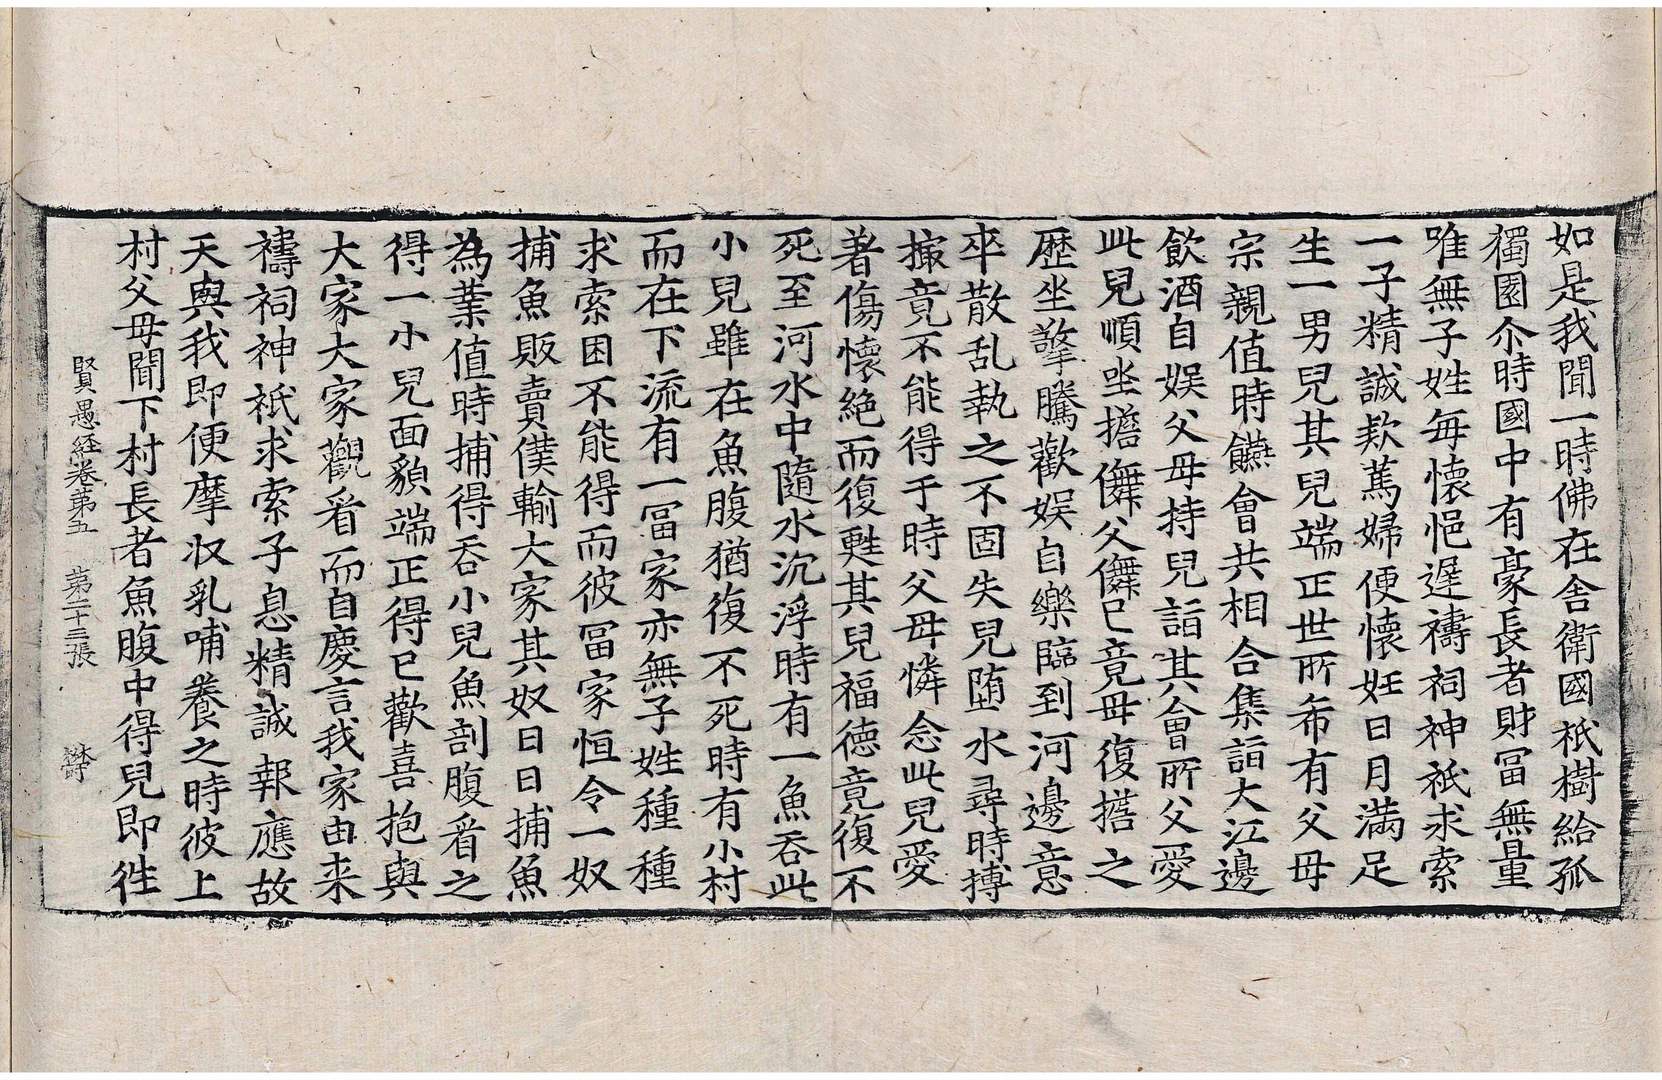 如是我聞一時佛在舍衛國祇樹給孤
獨園尒時國中有豪長者財冨無量
唯無子姓毎懷悒遲禱祠神祇求索
一子精誠欵篤婦便懷妊日月滿足
生一男兒其兒端正世所希有父母
宗親值時醼會共相合集詣大江邊
飲酒自娛父母持兒詣其會所父愛
此兒順坐擔儛父儛已竟母復擔之
歷坐擎騰歡娛自樂臨到河邊意
卒散乱執之不固失兒墮水尋時搏
撮竟不能得于時父母憐念此兒愛
著傷懷絶而復甦其兒福德竟復不
死至河水中隨水沉浮時有一魚吞此
小兒雖在魚腹猶復不死時有小村
而在下流有一冨家亦無子姓種種
求索困不能得而彼冨家恒令一奴
捕魚販賣僕輸大家其奴日日捕魚
為業值時捕得吞小兒魚剖腹看之
得一小兒面貌端正得已歡喜抱與
大家大家觀看而自慶言我家由来
禱祠神祇求索子息精誠報應故
天與我即便摩収乳哺養之時彼上
村父母聞下村長者魚腹中得兒即往
賢愚経卷第五　第二十三張